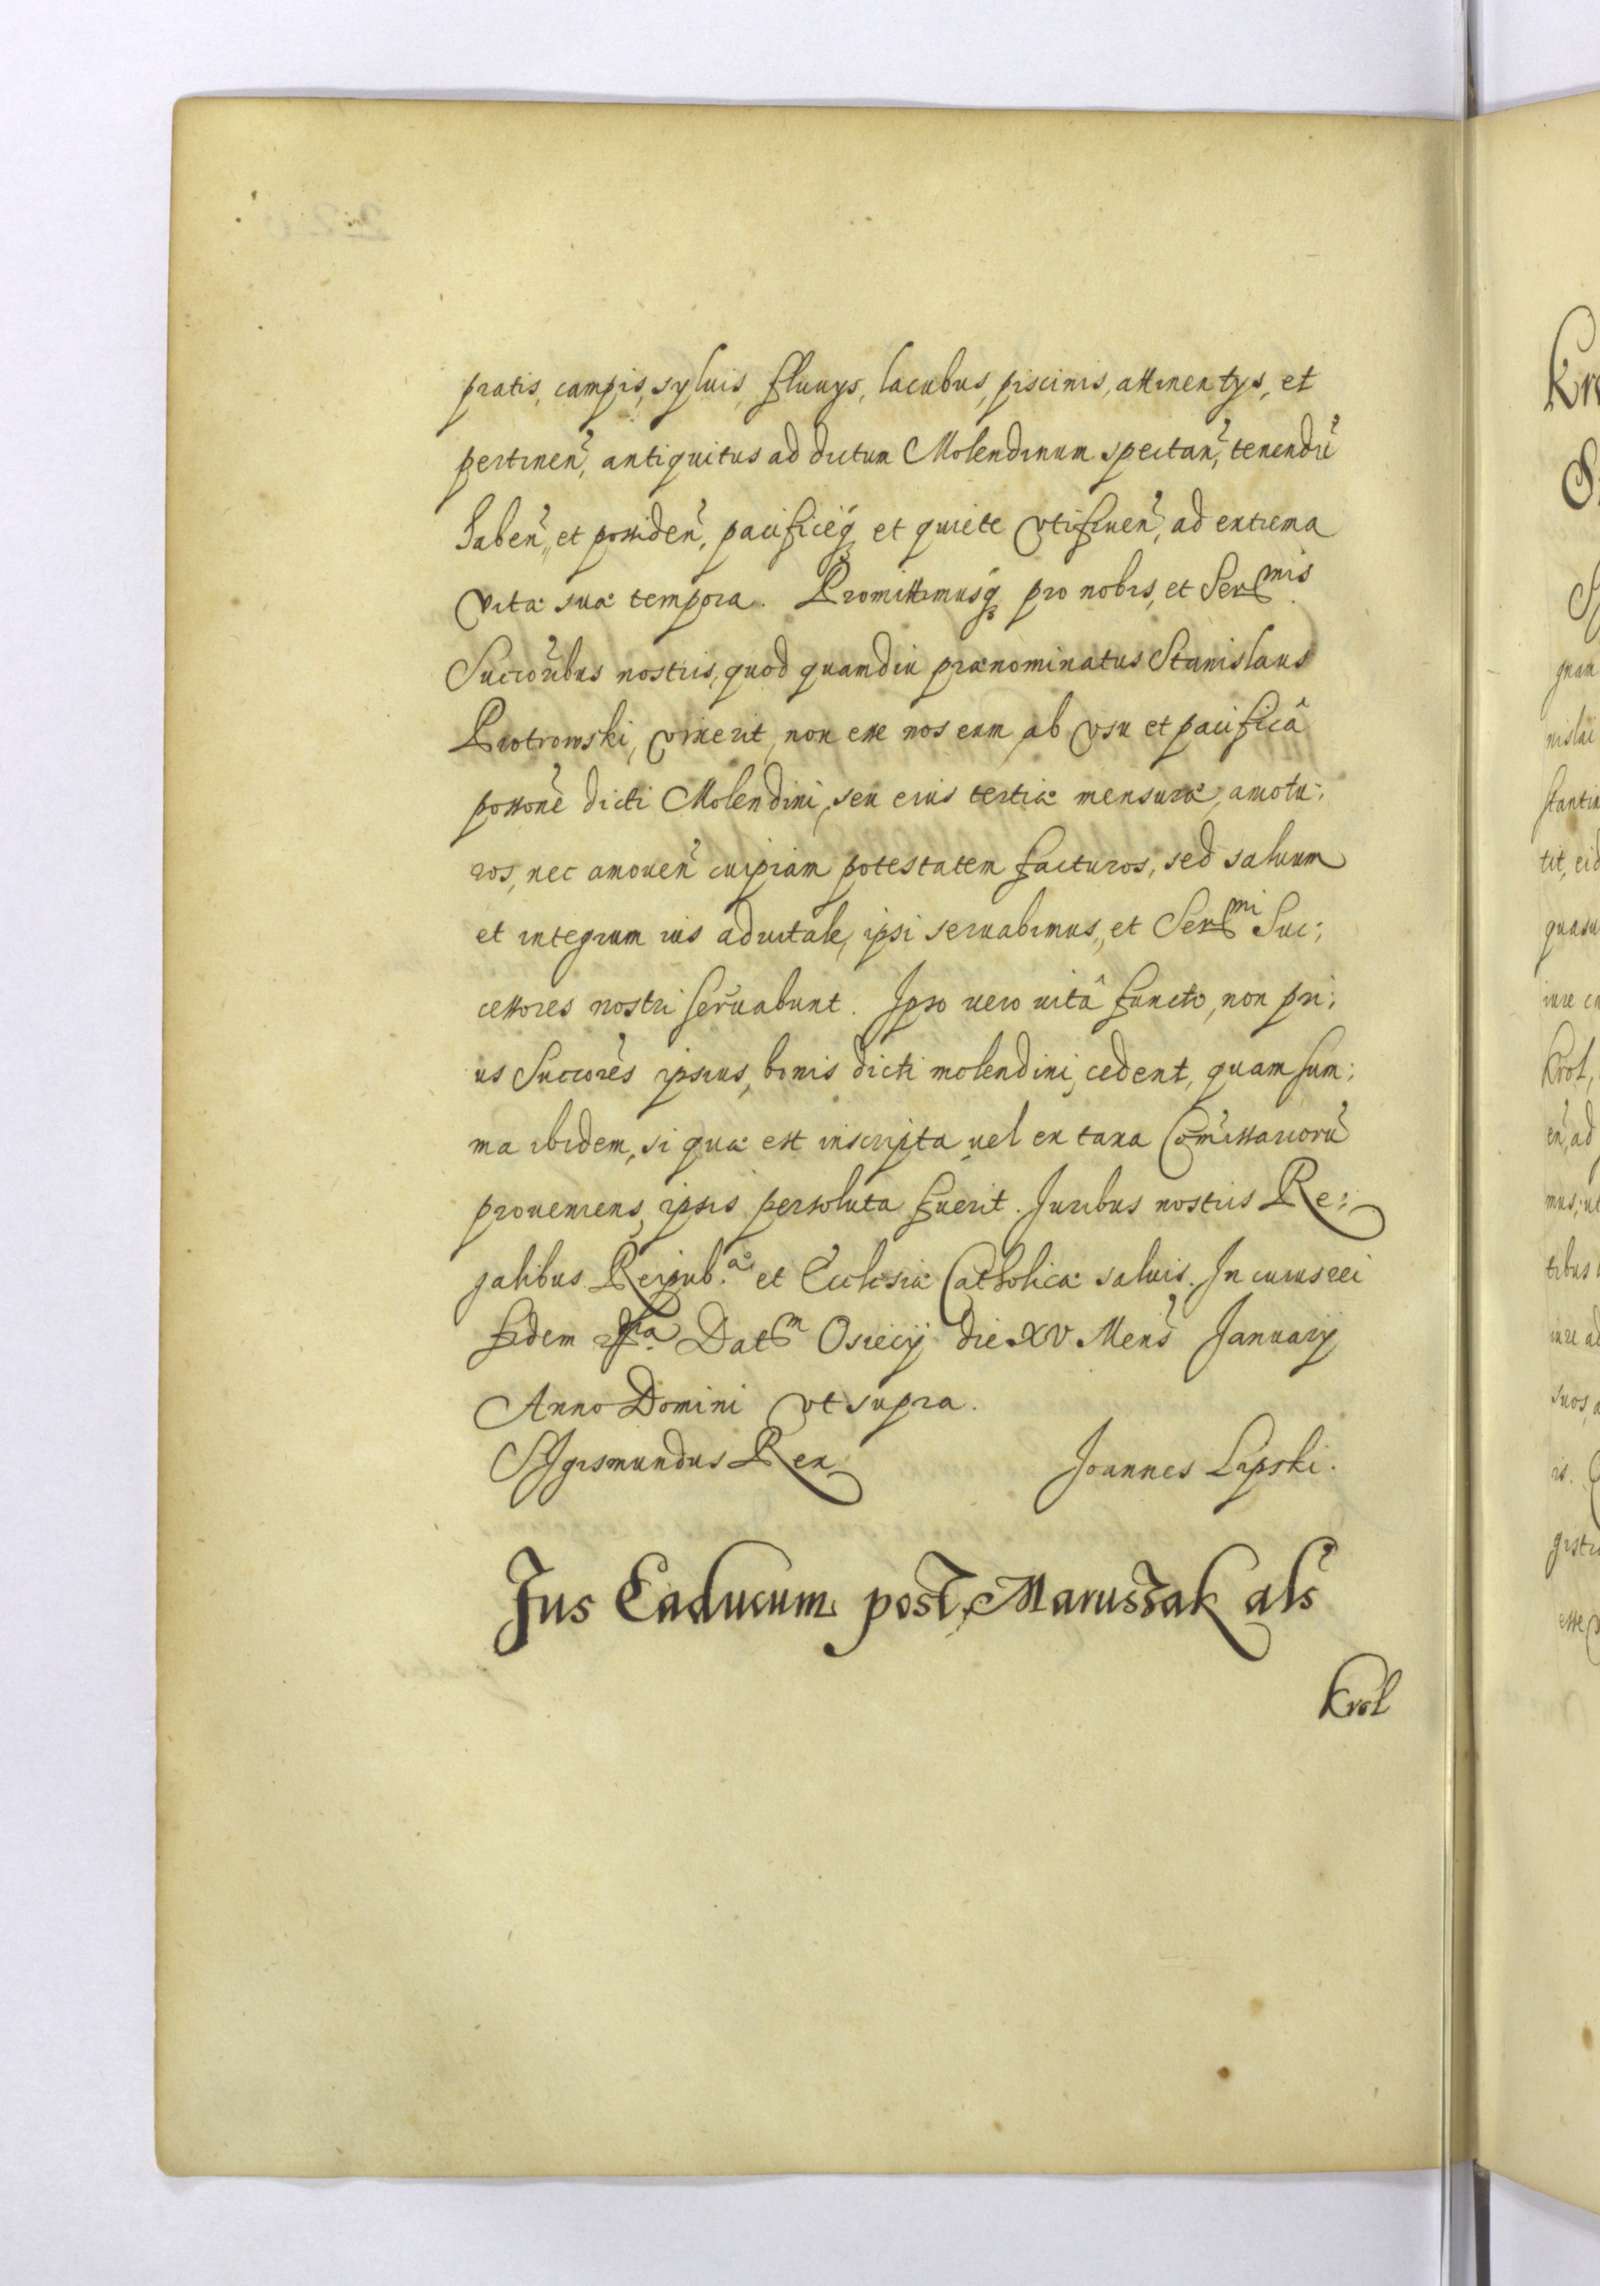 pratis, campis, syluis, fluuys, lacubus, piscinis, attinentys, et
pertinen, antiquitus ad dictum Molendinum spectan, tenendũ
haben, et possiden, pacificeq́ et quiete vtifruen, ad extrema
vitæ suæ tempora. Promittimusq́ pro nobis, et Ser^mis
Succoribus nostris, quod quamdiu prænominatus Stanislaus
Piotrowski, vixerit, non esse nos eum ab vsu et pacificâ
possone dicti Molendini, seu eius tertiæ mensuræ, amotu:
ros, nec amouen cuipiam potestatem facturos, sed saluum
et integrum ius aduitale, ipsi seruabimus, et Ser^mi Suc:
cessores nostri seruabunt. Ipso uero uitâ functo, non pri:
us Succores ipsius, bonis dicti molendini, cedent, quam sum:
ma ibidem, si quæ est inscripta, uel ex taxa Comissariorũ
proueniens, ipsis persoluta fuerit. Iuribus nostris Re:
galibus Reipub.æ et Ecclesiæ Catholicæ saluis. In cuius rei
fidem Dat^m Osiecij die XV Mens January
Anno Domini vt supra.
SIgismundus Rex Joannes Lipski.
Jus Caducum post Maruszak als
Krol